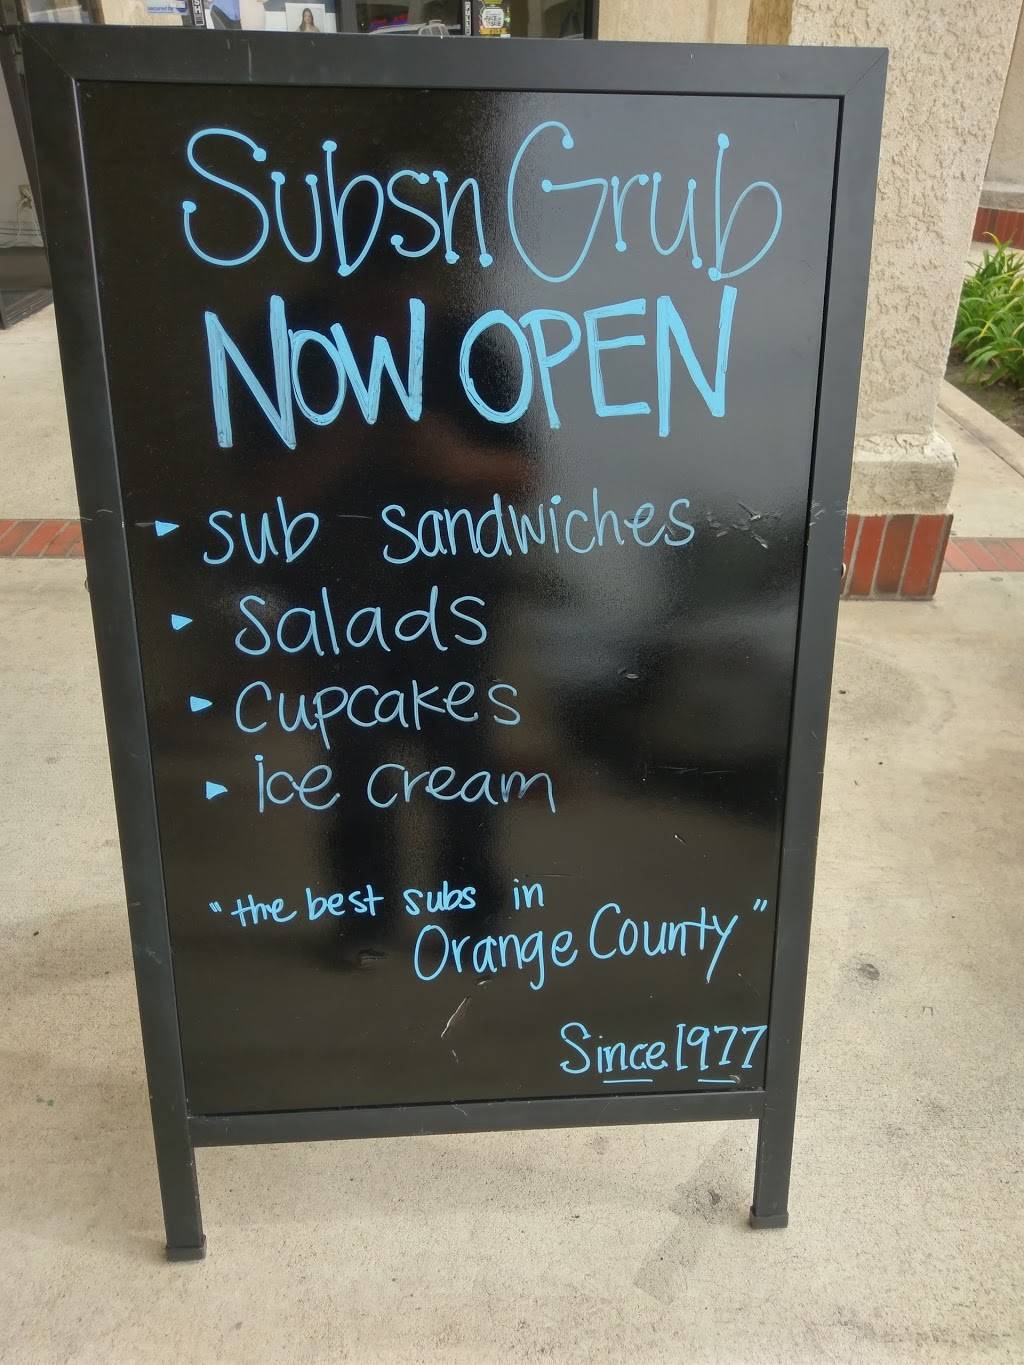 Subsn Grub
NOW OPEN
▸ sub sandwiches
▸ Salads
▸ Cupcakes
▸ ice cream
"the best subs in
Orange County"
Since 1977